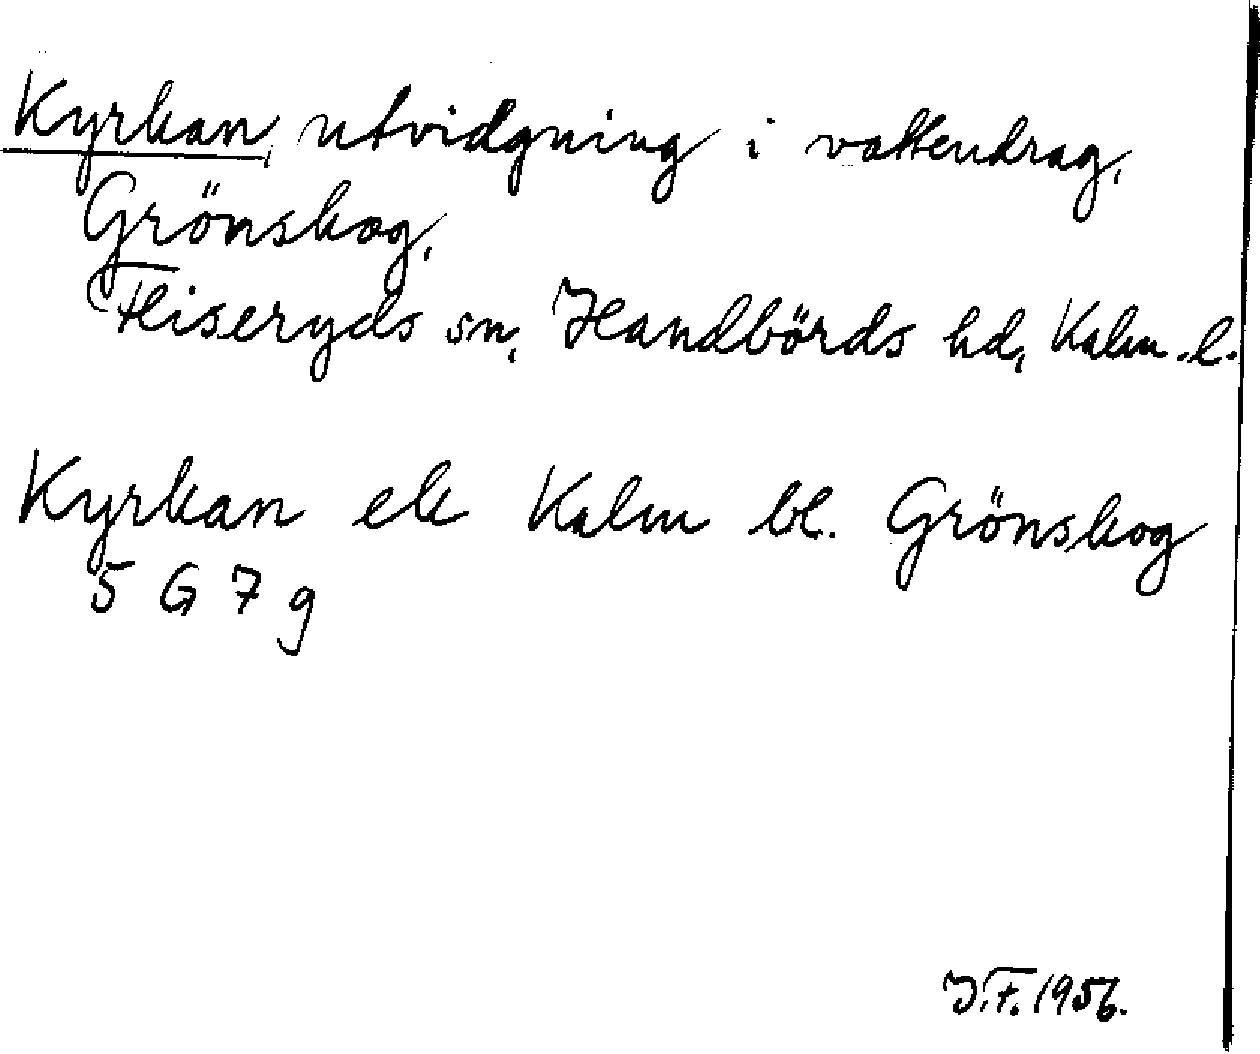 Kyrkan, utvidgning i vattendrag,
Grönskog,
Fliseryds sn, Handbörds hd, Kalm. l.
Kyrkan ek Kalm bl. Grönskog
5 G 7 g
J.F. 1956.